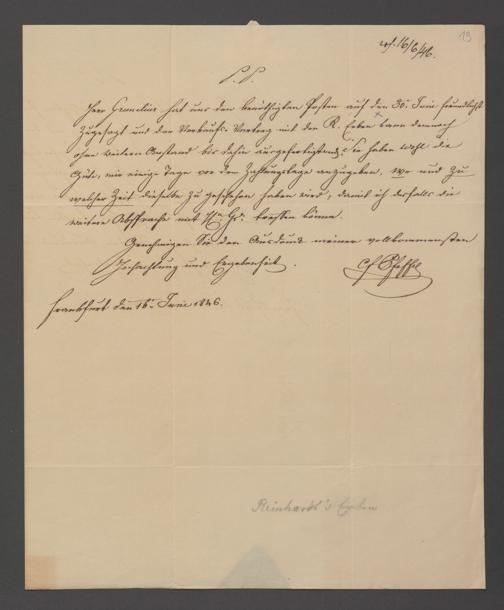 19
16/6/46.
P. P.
Herr Grunelius hat uns den benöthigten Posten auf den 30. Juni freundlichst
zugesagt und der Verkaufs-Vertrag mit den R. Erben kann demnach
ohne weitern Anstand bis dahin ausgefertigt werden. Sie haben wohl die
Güte, mir einige Tage vor dem Zahlungstage anzugeben, wo und zu
welcher Zeit dieselbe zu geschehen haben wird, damit ich deshalb die
weitere Absprache mit Hn. Gr. treffen könne.
Genehmigen Sie den Ausdruck meiner vollkommensten
Hochachtung und Ergebenheit.
Pfeffel
Frankfurt den 16. Juni 1846.
Reinhardt's Erben